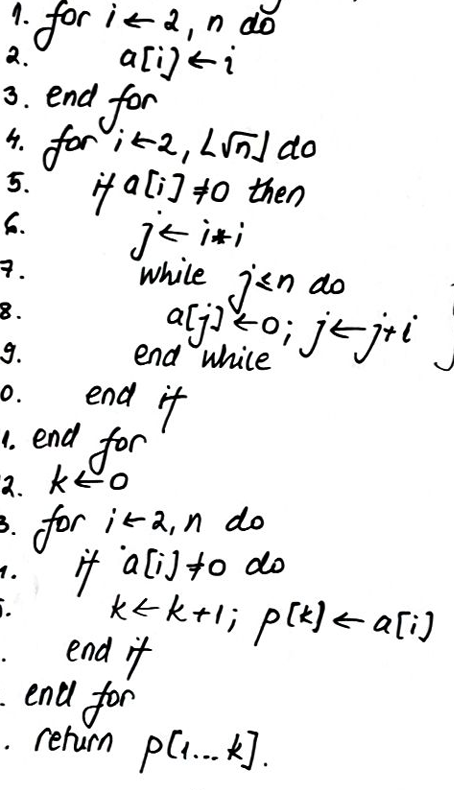 1. for i ← 2, n do
2. a[i] ← i
3. end for
4. for i ← 2, ⌊√n⌋ do
5. if a[i] ≠ 0 then
6. j ← i*i
7. while j ≤ n do
8. a[j] ← 0; j ← j+i
9. end while
0. end if
1. end for
2. k ← 0
3. for i ← 2, n do
if a[i] ≠ 0 do
k ← k+1; p[k] ← a[i]
. end if
. end for
. return p[1...k].